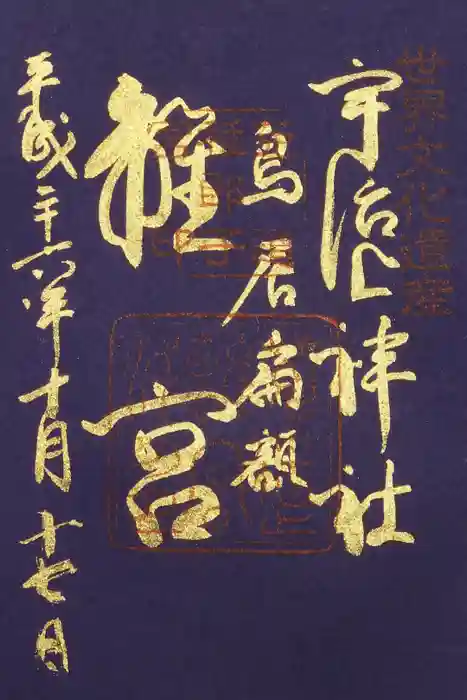 世界文化遺産
宇治上神社
鳥居扁額
離宮
平成二十六年十月十七日